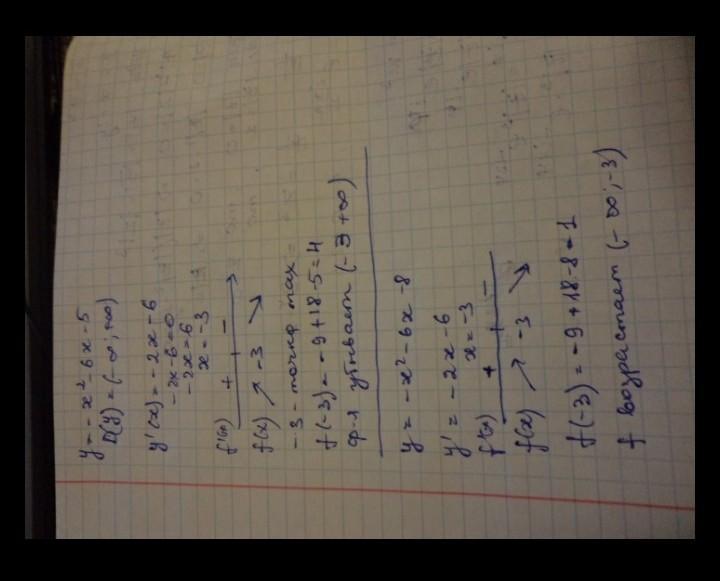 y = - x² - 6x - 5
D(y) = (- ∞; +∞)
y'(x) = - 2x - 6
- 2x - 6 = 0
- 2x = 6
x = -3
f'(x) + -
f(x) ↗ -3 ↘
-3 - точка max
f(-3) = - 9 + 18 - 5 = 4
ф-я убывает (- 3 +∞)
y = - x² - 6x - 8
y' = - 2x - 6
x = -3
f'(x) + -
f(x) ↗ -3 ↘
f(-3) = - 9 + 18 - 8 = 1
f возрастает (- ∞; -3)